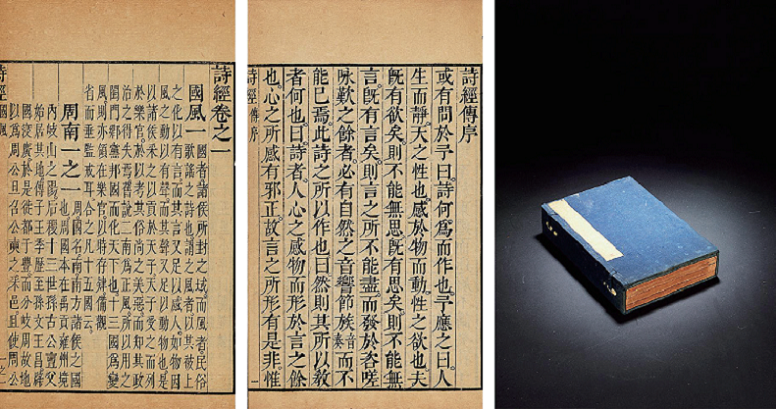 詩經卷之一
國風一 國者諸侯所封之域而風者民俗
歌謠之詩也謂之風者以其被上
之化以有言而其言又足以感人如物因
風之動以有聲而其聲又足以動物也是
以諸侯采之以貢於天子天子受之而列
於樂官於以考其俗尚之美惡而知其政
治之得失焉舊說二南為正風所以用之
閨門鄉黨邦國而化天下也十三國為變
風則亦領在樂官以時存肄備觀
省而垂監戒耳合之凡十五國云
周南一之一 周國名南南方諸侯之國
也周國本在禹貢雍州境
內岐山之陽后稷十三世孫古公亶父
始居其地傳子王季歷至孫文王昌辟
國寖廣於是徙都于豐而分岐周故地
以為周公旦召公奭之采邑且使周公
詩經 國風 一之一
詩經傳序
或有問於予曰詩何為而作也予應之曰人
生而靜天之性也感於物而動性之欲也夫
既有欲矣則不能無思既有思矣則不能無
言既有言矣則言之所不能盡而發於咨嗟
咏歎之餘者必有自然之音響節族音奏而不
能已焉此詩之所以作也曰然則其所以教
者何也曰詩者人心之感物而形於言之餘
也心之所感有邪正故言之所形有是非惟
詩經 傳序 一